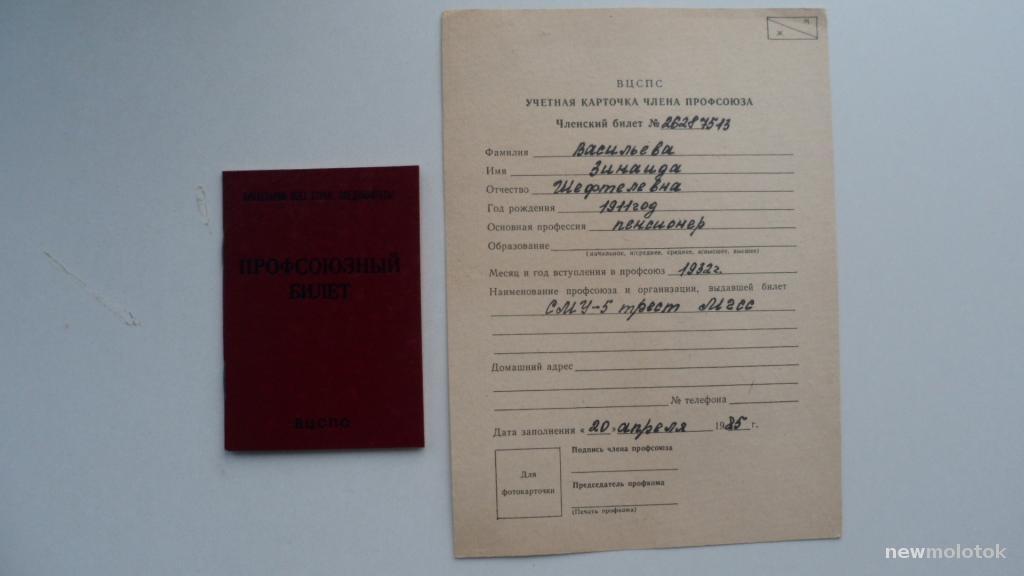 ПРОФСОЮЗНЫЙ
БИЛЕТ
ВЦСПС
Ж М
ВЦСПС
УЧЕТНАЯ КАРТОЧКА ЧЛЕНА ПРОФСОЮЗА
Членский билет № 26287513
Фамилия Васильева
Имя Зинаида
Отчество Шефтелевна
Год рождения 1911 год
Основная профессия пенсионер
Образование
(начальное, н/среднее, среднее, н/высшее, высшее)
Месяц и год вступления в профсоюз 1932г.
Наименование профсоюза и организации, выдавшей билет
СМУ-5 трест МГСС
Домашний адрес
№ телефона
Дата заполнения «20» апреля 1985 г.
Для
фотокарточки
Подпись члена профсоюза
Председатель профкома
(Печать профкома)
newmolotok